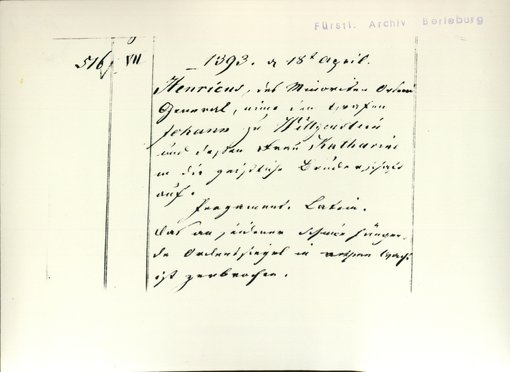 Fürstl. Archiv Berleburg
516 VII 1393. d 18t April.
Henricus, des Minoriten Ordens
General, nimt den Grafen
Johann zu Wittgenstein
und dessen Frau Katharina
in die geistliche Brüderschaft
auf.
Pergament. Latein.
Das an seidener Schnur hängen-
de Ordenssiegel in rothem Wachs
ist zerbrochen.